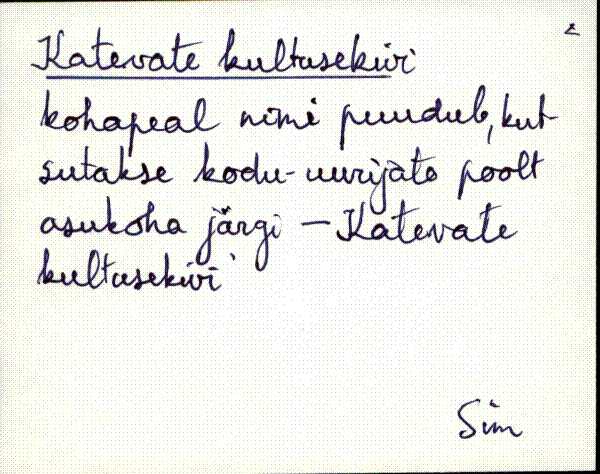 Katevate kultusekivi
kohapeal nimi puudub, kut-
sutakse kodu-uurijate poolt
asukoha järgi — Katevate
kultusekivi
Sim